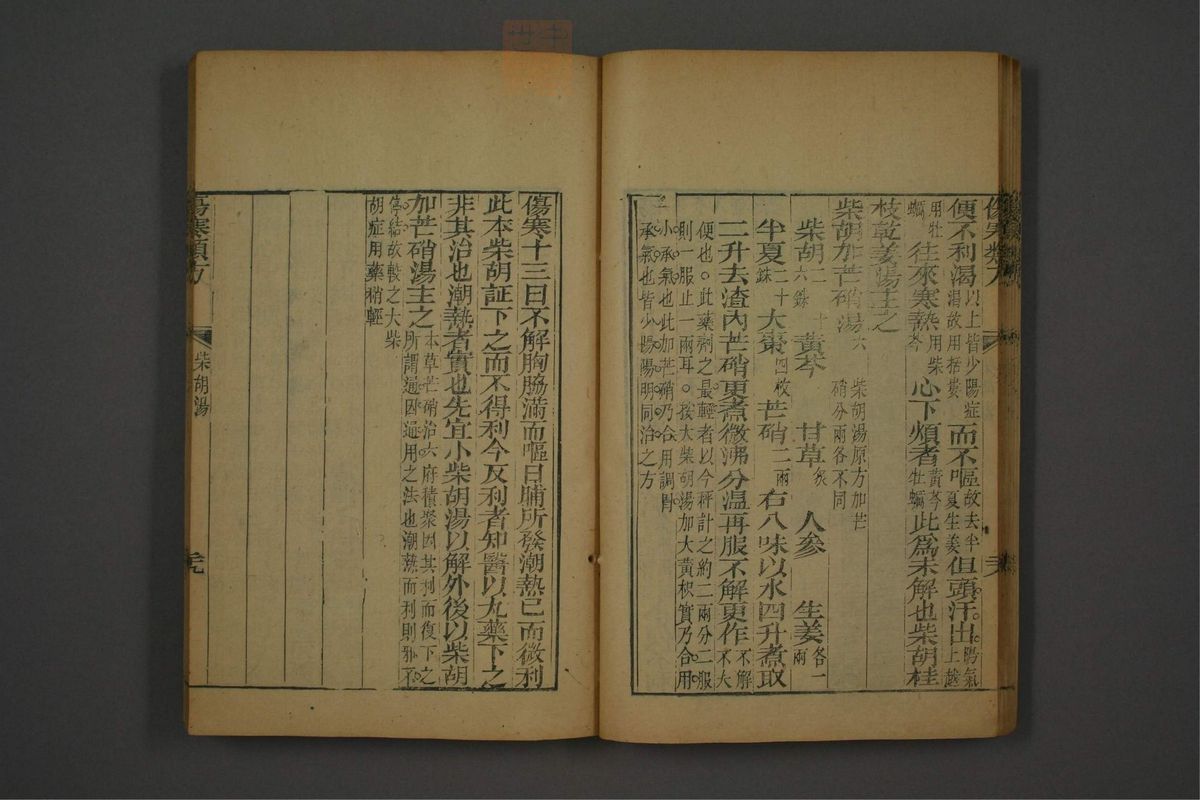 傷寒類方
便不利渴以上皆少陽症渴故用括蔞而不嘔故去半夏生姜但頭汗出陽氣上越
用牡蠣往來寒熱用柴芩心下煩者黃芩牡蠣此為未解也柴胡桂
枝乾姜湯主之
柴胡加芒硝湯六 柴胡湯原方加芒硝分兩各不同
柴胡二十六銖 黃芩 甘草炙 人參 生姜各一兩
半夏二十銖 大棗四枚 芒硝二兩 右八味以水四升煮取
二升去渣內芒硝更煮微沸分溫再服不解更作不解不大
便也。此藥劑之最輕者以今秤計之約二兩分二服
則一服止一兩耳。按大柴胡湯加大黃枳實乃合用
小承氣也此加芒硝乃合用調胃
承氣也皆少陽陽明同治之方
傷寒十三日不解胸脇滿而嘔日晡所發潮熱已而微利
此本柴胡証下之而不得利今反利者知醫以丸藥下之
非其治也潮熱者實也先宜小柴胡湯以解外後以柴胡
加芒硝湯主之本草芒硝治六府積聚因其利而復下之所謂通因通用之法也潮熱而利則邪不
停結故較之大柴
胡症用藥稍輕
傷寒類方
柴胡湯
元